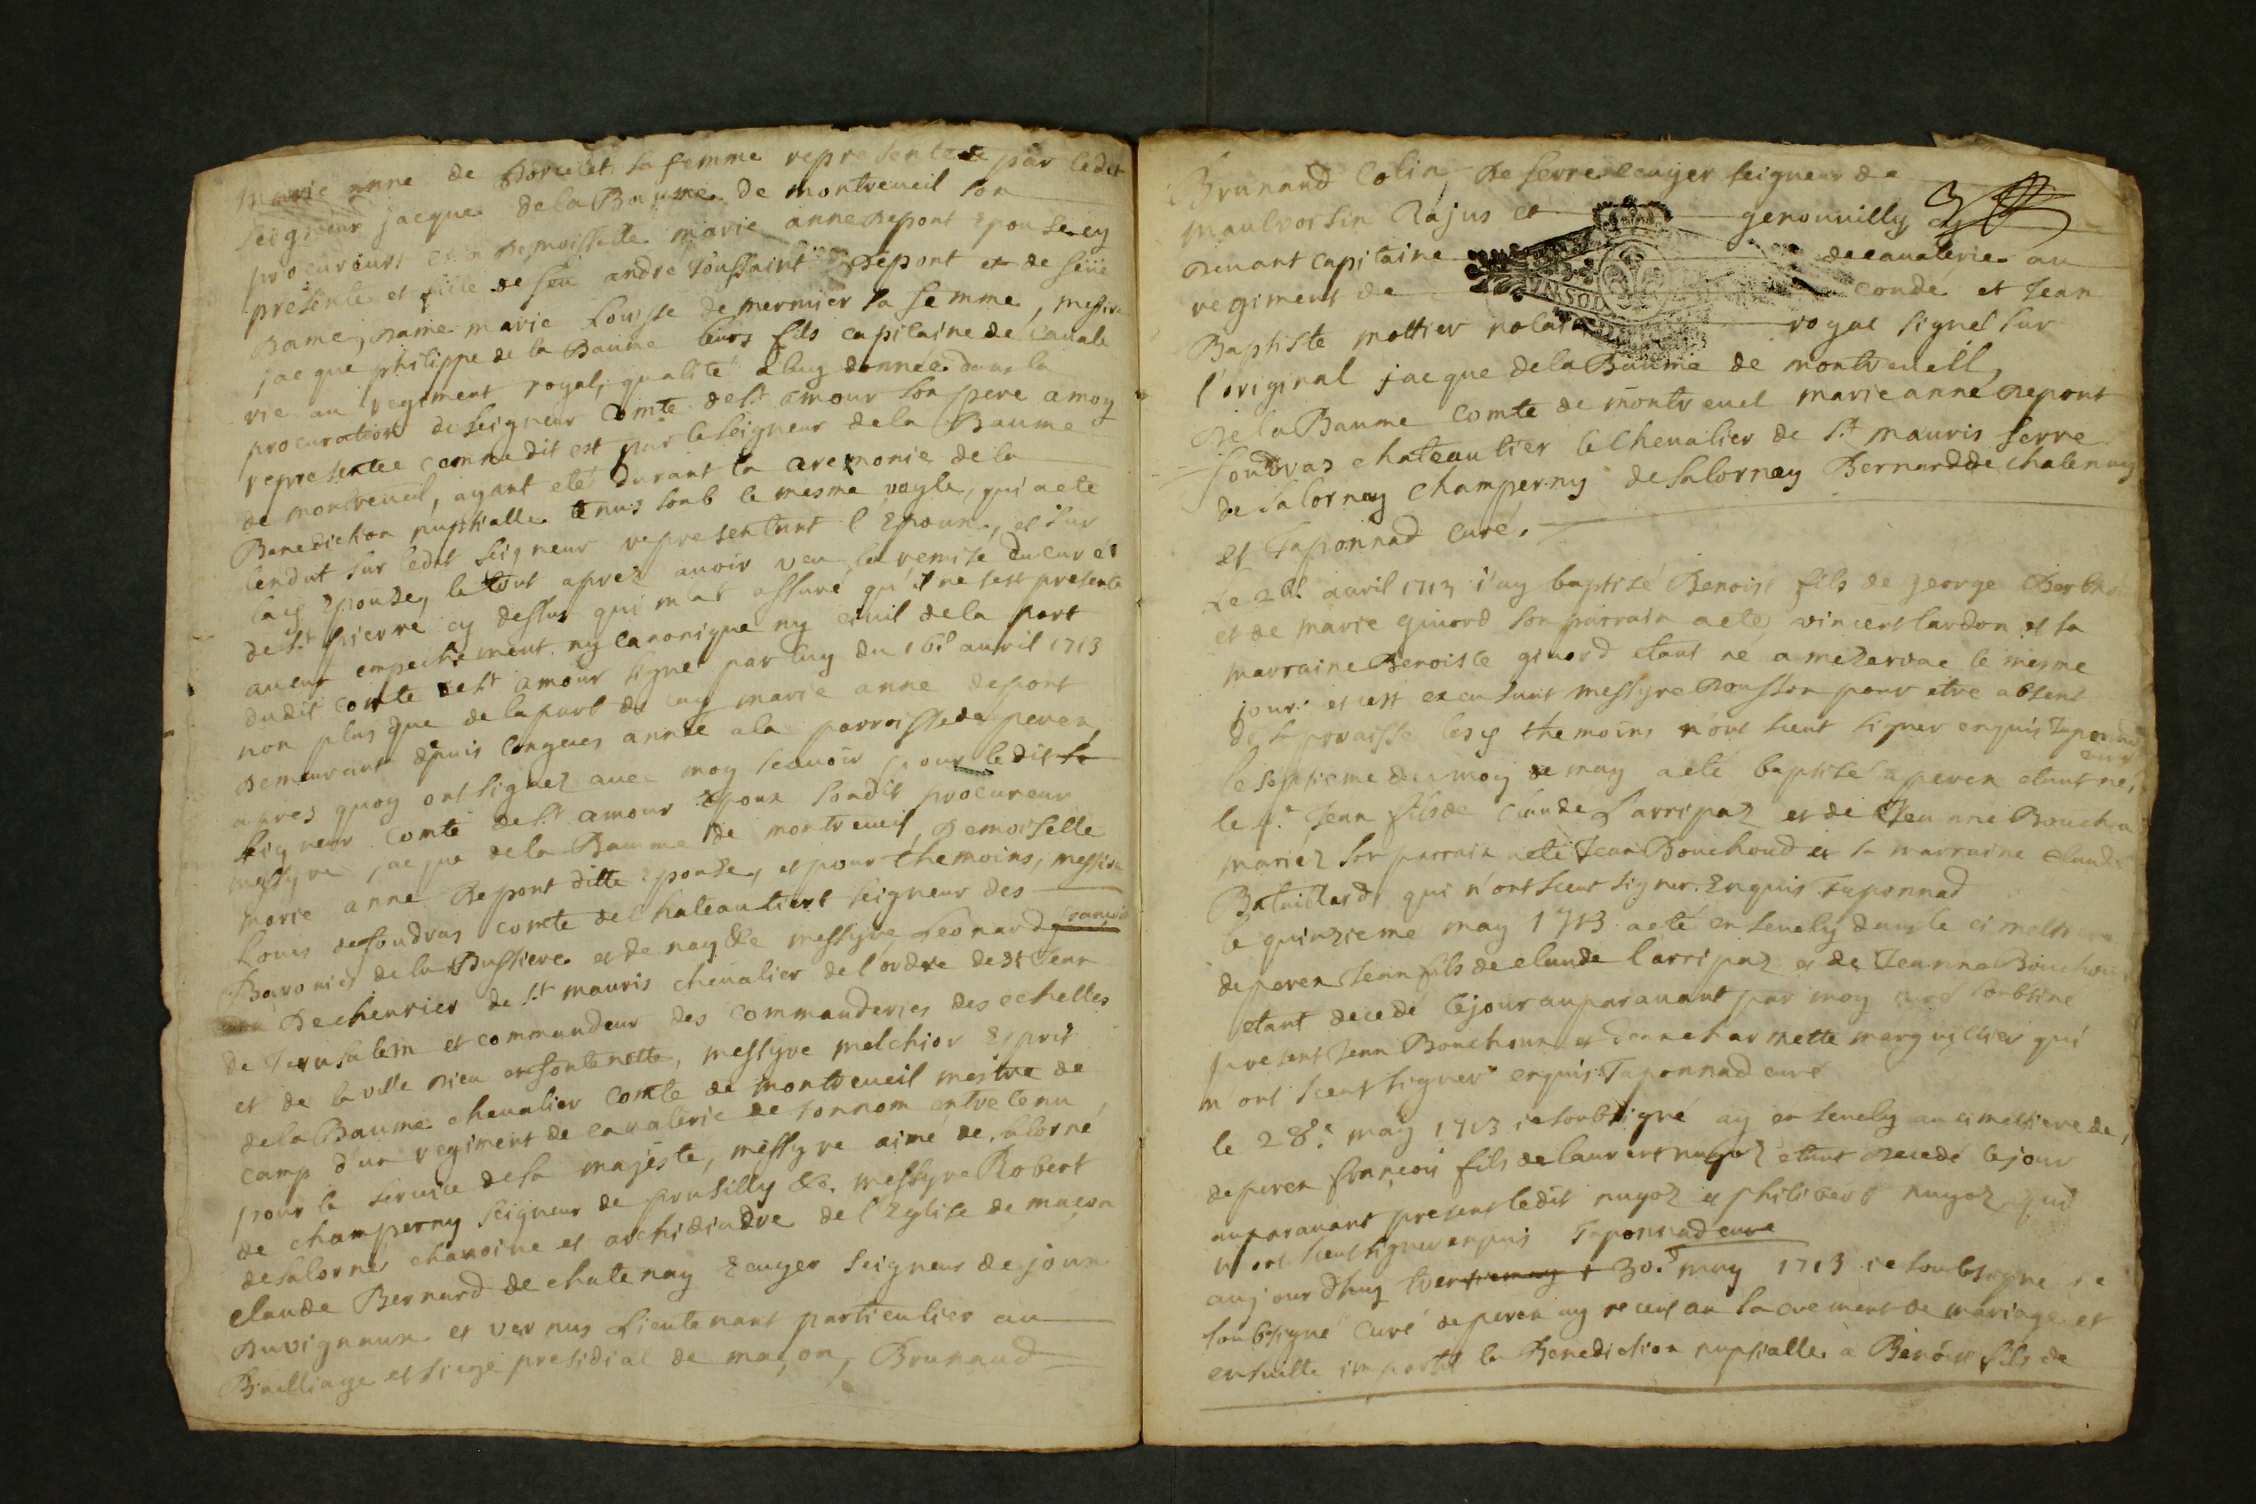 marie anne de Porcelet sa femme representée par ledit
seigneur jacque de la Baume de montreueil son
procureur et demoisselle marie anne depont Epouse cy
presente et fille de feu andré Toussaint Depont et de feüe
Dame, Dame marie Louisse de mermier sa femme, messire
jacque philippe de la Baume leurs fils capitaine de Cauale
rie au regiment royal, qualité a luy donnée dans la
procuration du seigneur Comte de st amour son pere a moy
representee comme dit est par le seigneur de la Baume
de montreueil, ayant eté durant la ceremonie de la
Benediction nuptialle tenus soub le mesme voyle, qui a eté
tendut sur ledit seigneur representant l'Epoux, et sur
lacy Epouze, le tout aprez auoir veu la remise du curé
de st pierre cy dessus qui m'at assuré qu'il ne s'est presenté
aucun empechement ny canonique ny ciuil de la part
dudit comte de st amour signé par luy du 16e auril 1713
non plus que de la part de cy marie anne depont
demeurant depuis longues année a la parroisse de peren
apres quoy ont signez auec moy scauoir pour ledit
seigneur comte de st amour epoux sondit procureur
messyre jacque de la Baume de montreueil, Demoiselle
marie anne Depont ditte epouze, et pour themoins, messire
Louis de foudras comte de Chateautiers seigneur des
Baronies de la Bussiere et de nay &c messyre Leonard françois
Dechenrier de st mauris cheualier de l'ordre de st Jean
de Jerusalem et commandeur des commanderies des echelles
et de la ville Dieu en fontenette, messyre melchior Esprit
de la Baume cheualier comte de montreueil mestre de
camp d'un regiment de caualerie de son nom entretenu
pour le seruice de sa majeste, messyre aimé de salorné
de champerny seigneur de prusilly &c. messyre Robert
de salorné chanoine et archidiacre de l'Eglise de macon
claude Bernard de chatenay Ecuyer seigneur de joux
Duvignaux et vernus Lieutenant particulier au
Bailliage et siege presidial de maçon, Brunaud
Brunand Colin, De serre ecuyer seigneur de
maulvoisin Rajus et genouuilly cy
deuant capitaine de caualerie au
regiment de condé et Jean
Baptiste mottier notaire royal signé sur
l'original jacque de la Baume de montreuell,
De la Baume Comte de montreuel marie anne Depont
foudras chateautier le cheualier de st mauris serre
de salornay champerny de salornay Bernard de chatenay
et Taponnad curé.
auril 1713 i'ay baptisé Benoist fils de george
et de marie guiord son parrain a eté vincent lardon et sa
marraine Benoiste giuord etant né a mezeruae le mesme
jour. et cest exeusant messyre Rousson pour etre absent
de sa proaisse lesy themoins n'ont sceut signer enquis Taponnad
curé
le septieme du moy de may a eté baptisé a peren etant né,
le 4.e Jean fils de Claude Larripaz et de Jeanne Boucho
mariez son parrain a eté Jean Bouchoud et sa marraine claudi
Bataillard qui n'ont sceut signer. Enquis Taponnad
le quinzieme may 1713 a eté en seuely dans le cimettiere
de peren Jean fils de claude Larripaz et de Jeanne Bouchou
etant decedé le jour auparauant par moy curé soubsine
present Jean Bouchoux et charnette marguillier qui
n'ont sceut signer enquis: Taponnad curé
le 28.e may 1713 ie soubsigné ay en seuely au cimettiere de,
de peren françois fils de laurent nugoz etant Decedé le jour
auparauant present ledit nugoz et philibert nugoz qui
n'ont sceut signer enquis Taponnad curé
aujourdhuy 30.e may 1713 ie soubsigne ie
soubsigné curé de peren ay receut au sacrement de mariage et
ensuitte imparti la Benediction nuptialle à Benoist fils de